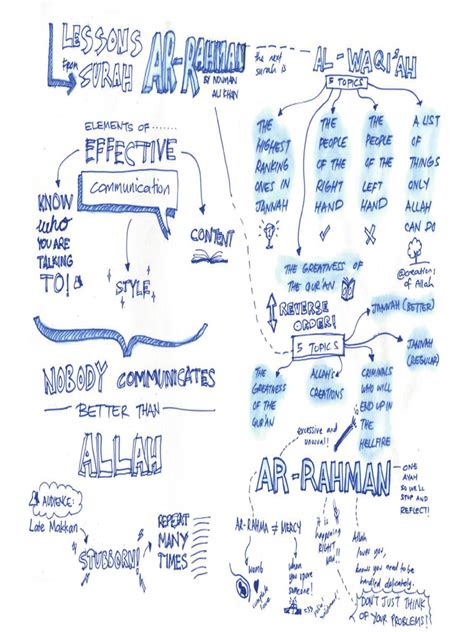 LESSONS
from
SURAH
AR-RAHMAN
BY NOUMAN
ALI KHAN
the next
surah is
AL-WAQI'AH
5 TOPICS
ELEMENTS OF
EFFECTIVE
communication
KNOW
who
YOU ARE
TALKING
TO!
STYLE
CONTENT
THE
HIGHEST
RANKING
ONES IN
JANNAH
THE
PEOPLE
OF THE
RIGHT
HAND
THE
PEOPLE
OF THE
LEFT
HAND
A LIST
OF
THINGS
ONLY
ALLAH
CAN DO
@creations
of Allah
THE GREATNESS OF
THE QUR'AN
REVERSE
ORDER!
5 TOPICS
JANNAH (BETTER)
JANNAH
(REGULAR)
THE
GREATNESS
OF THE
QUR'AN
ALLAH'S
CREATIONS
CRIMINALS
WHO WILL
END UP IN
THE
HELLFIRE
NOBODY COMMUNICATES
BETTER THAN
ALLAH
AUDIENCE:
Late Makkan
STUBBORN!
REPEAT
MANY
TIMES
excessive and
unusual!
AR-RAHMAN
ONE
AYAH
SO WE'LL
STOP AND
REFLECT!
AR-RAHMA ≠ MERCY
womb
when
you spare
someone!
it is
happening
RIGHT
now!
Allah
loves you,
knows you need to be
handled delicately.
DON'T JUST THINK
OF YOUR PROBLEMS!